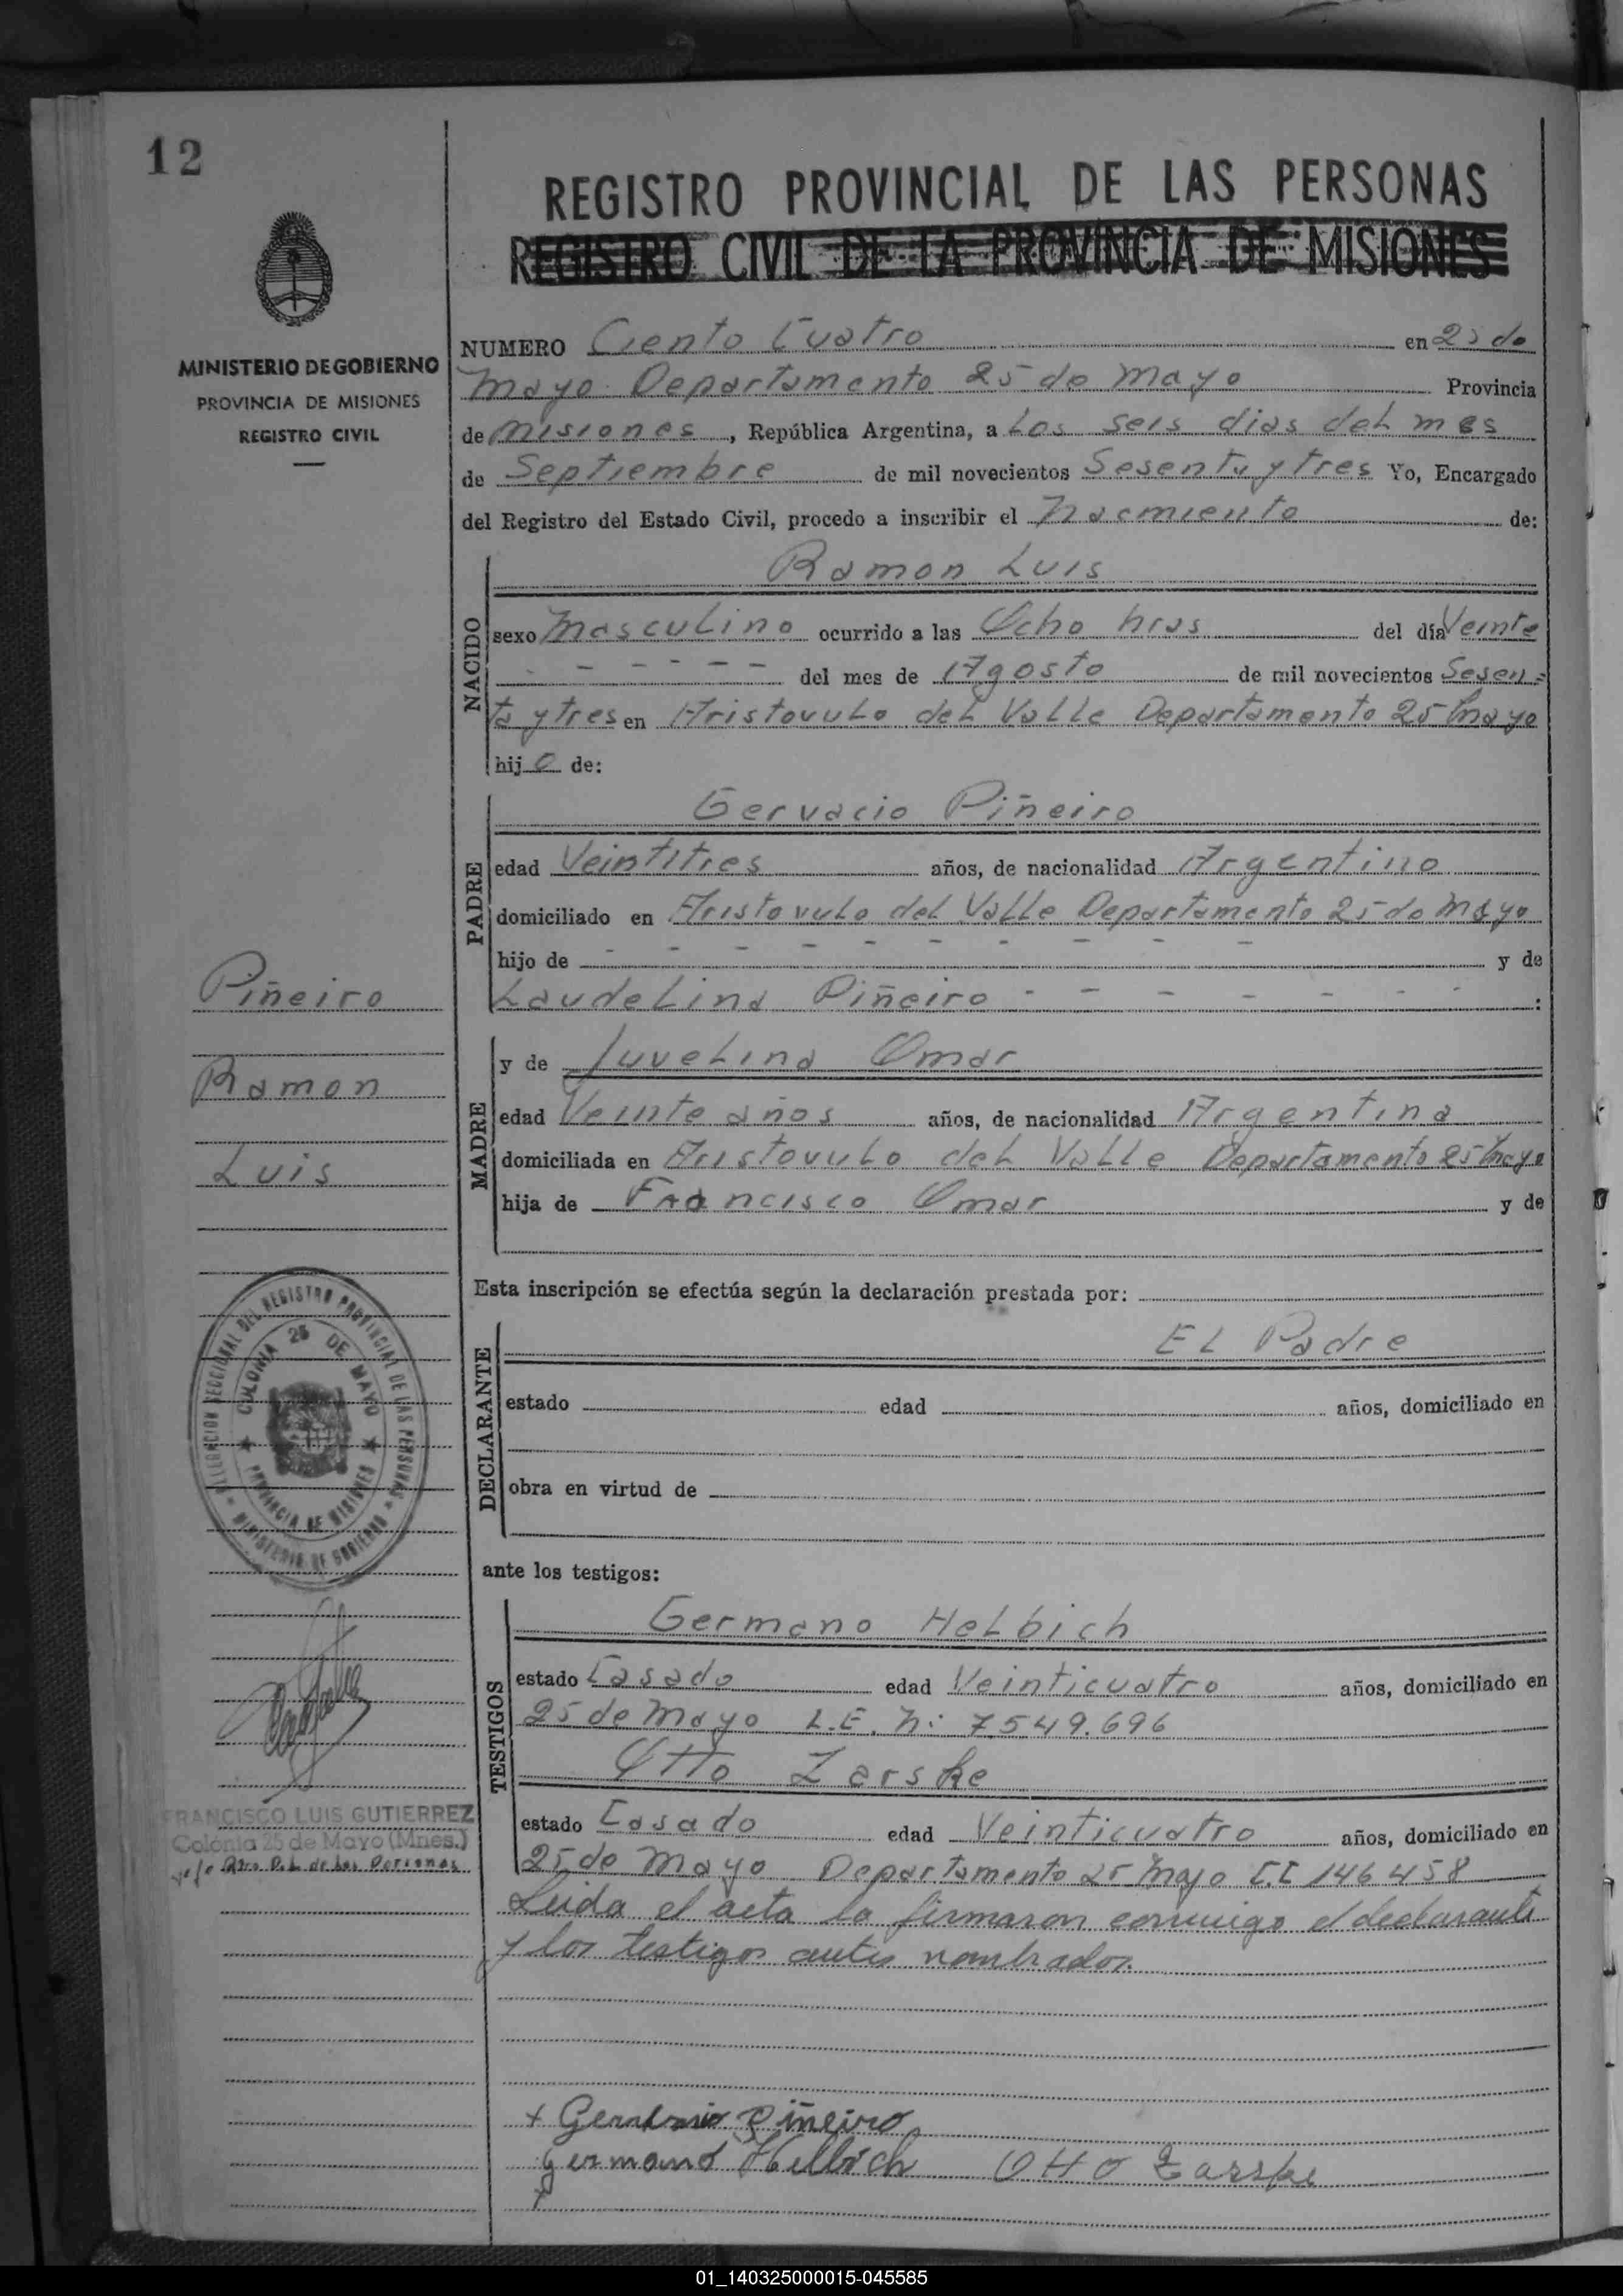 12
REGISTRO PROVINCIAL DE LAS PERSONAS
REGISTRO CIVIL DE LA PROVINCIA DE MISIONES
MINISTERIO DE GOBIERNO
PROVINCIA DE MISIONES
REGISTRO CIVIL
NUMERO Ciento Cuatro en 25 de
mayo Departamento 25 de mayo Provincia
de misiones, República Argentina, a Los seis dias del mes
de Septiembre de mil novecientos Sesenta y tres Yo, Encargado
del Registro del Estado Civil, procedo a inscribir el Nacmiento de:
NACIDO
Ramon Luis
sexo masculino ocurrido a las Ocho hras del día Veinte
- - - - - - del mes de Agosto de mil novecientos Sesen=
ta y tres en Aristovulo del Valle Departamento 25 mayo
hijo de:
PADRE
Gervacio Piñeiro
edad Veintitres años, de nacionalidad Argentino
domiciliado en Aristovulo del Valle Departamento 25 de mayo
hijo de - - - - - - - - - - y de
Laudelina Piñeiro - - - - - - - :
MADRE
y de Juvelina Omar
edad Veinte años años, de nacionalidad Argentina
domiciliada en Aristovulo del Valle Departamento 25 mayo
hija de Francisco Omar y de
Piñeiro
Ramon
Luis
Esta inscripción se efectúa según la declaración prestada por:
DECLARANTE
El Padre
estado edad años, domiciliado en
obra en virtud de
SECCIONAL DEL REGISTRO PROVINCIAL DE LAS PERSONAS
MINISTERIO DE GOBIERNO
COLONIA 25 DE MAYO
PROVINCIA DE MISIONES
ante los testigos:
TESTIGOS
Germano Helbich
estado Casado edad Veinticuatro años, domiciliado en
25 de mayo L.E. N: 7549.696
Otto Zarske
estado Casado edad Veinticuatro años, domiciliado en
25 de mayo Departamento 25 mayo C.I 146458
Leida el acta la firmaron conmigo el declarante
y los testigos antes nombrados.
FRANCISCO LUIS GUTIERREZ
Colonia 25 de Mayo (Mnes.)
Jefe Rgro. P.L. de las Personas
+ Piñeiro
Germano Helbich Otto Zarske
01_140325000015-045585